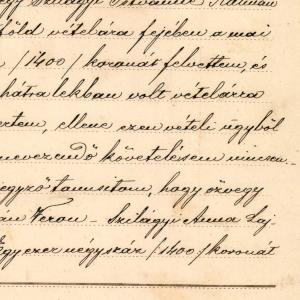 Szilágyi Istvánné Kálmán
föld vételára fejében a mai
/1400/ koronát felvettem, és
hátralékban volt vételárra
ellene ezen vételi ügyből
nevezendő követelésem nincsen.
jegyző tanusitom, hogy özvegy
Veron - Szilágyi Anna Laj-
Egyezer négyszáz /1400/ koronát